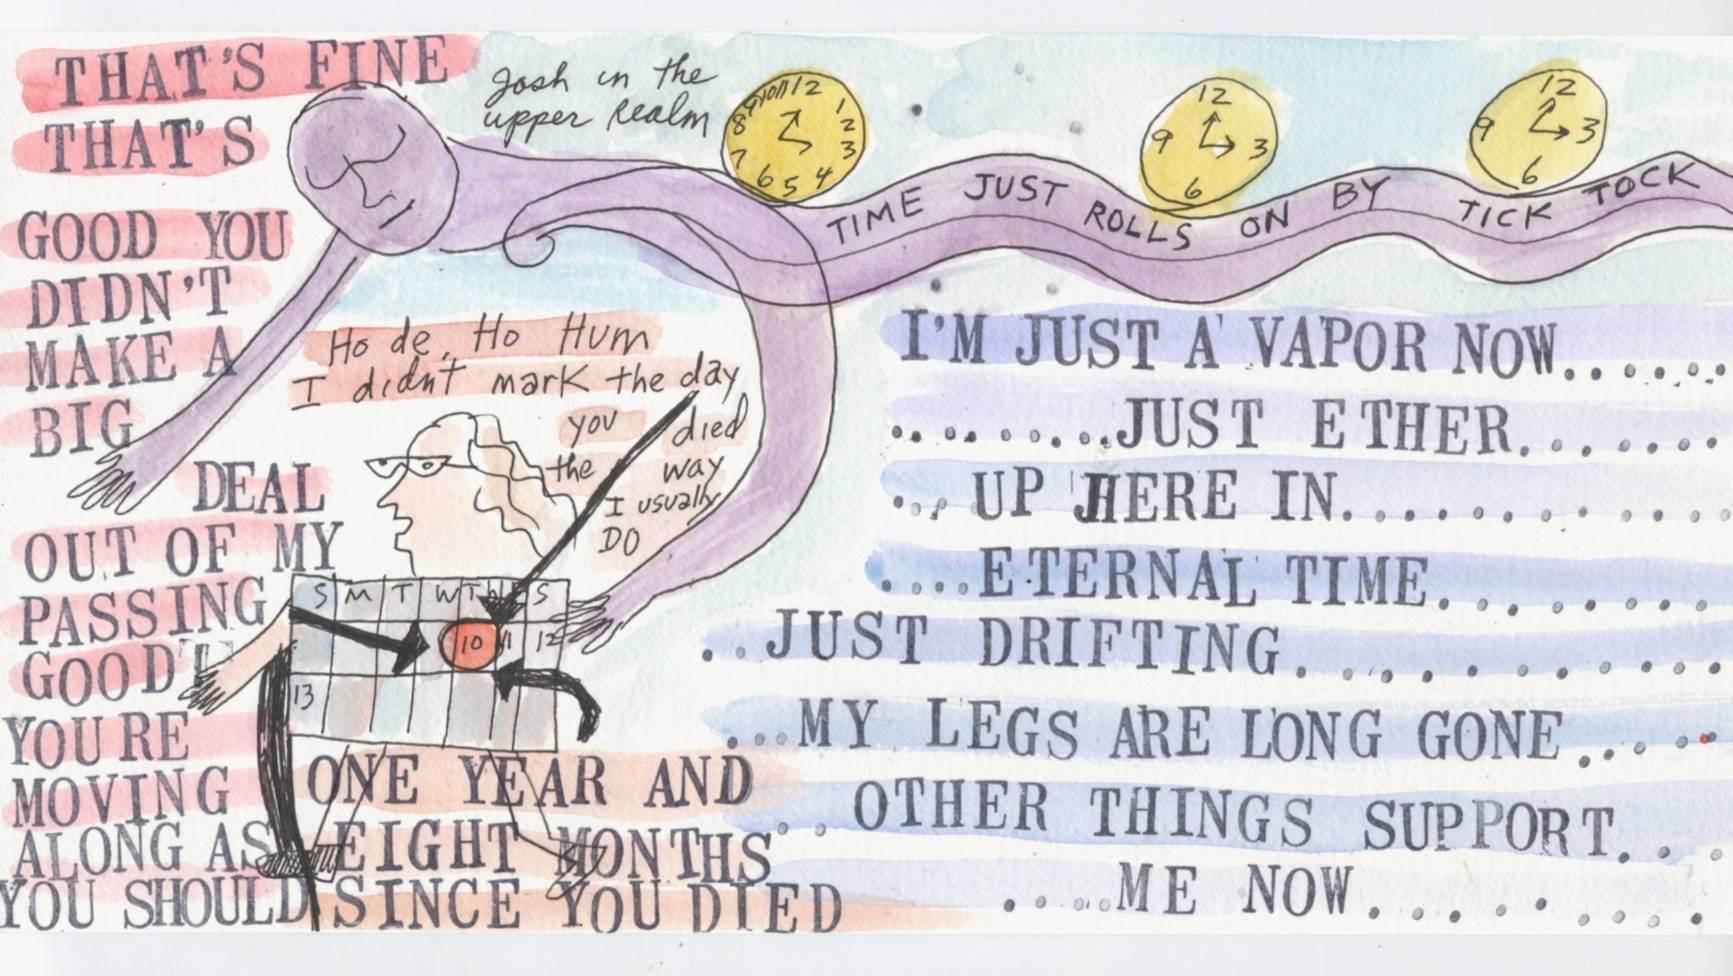 THAT'S FINE
THAT'S
GOOD YOU
DIDN'T
MAKE A
BIG
DEAL
OUT OF MY
PASSING
GOOD
YOU'RE
MOVING
ALONG AS
YOU SHOULD
Josh in the
upper Realm
12
1
2
3
4
5
6
7
8
12
3
6
9
12
3
6
9
TIME JUST ROLLS ON BY TICK TOCK
Ho de, Ho Hum
I didn't mark the day
you died
the way
I usually
DO
S M T W T S
10 11 12
13
ONE YEAR AND
EIGHT MONTHS
SINCE YOU DIED
I'M JUST A VAPOR NOW......
........JUST ETHER......
...UP HERE IN..........
....ETERNAL TIME........
..JUST DRIFTING...........
...MY LEGS ARE LONG GONE.....
..OTHER THINGS SUPPORT...
....ME NOW.........